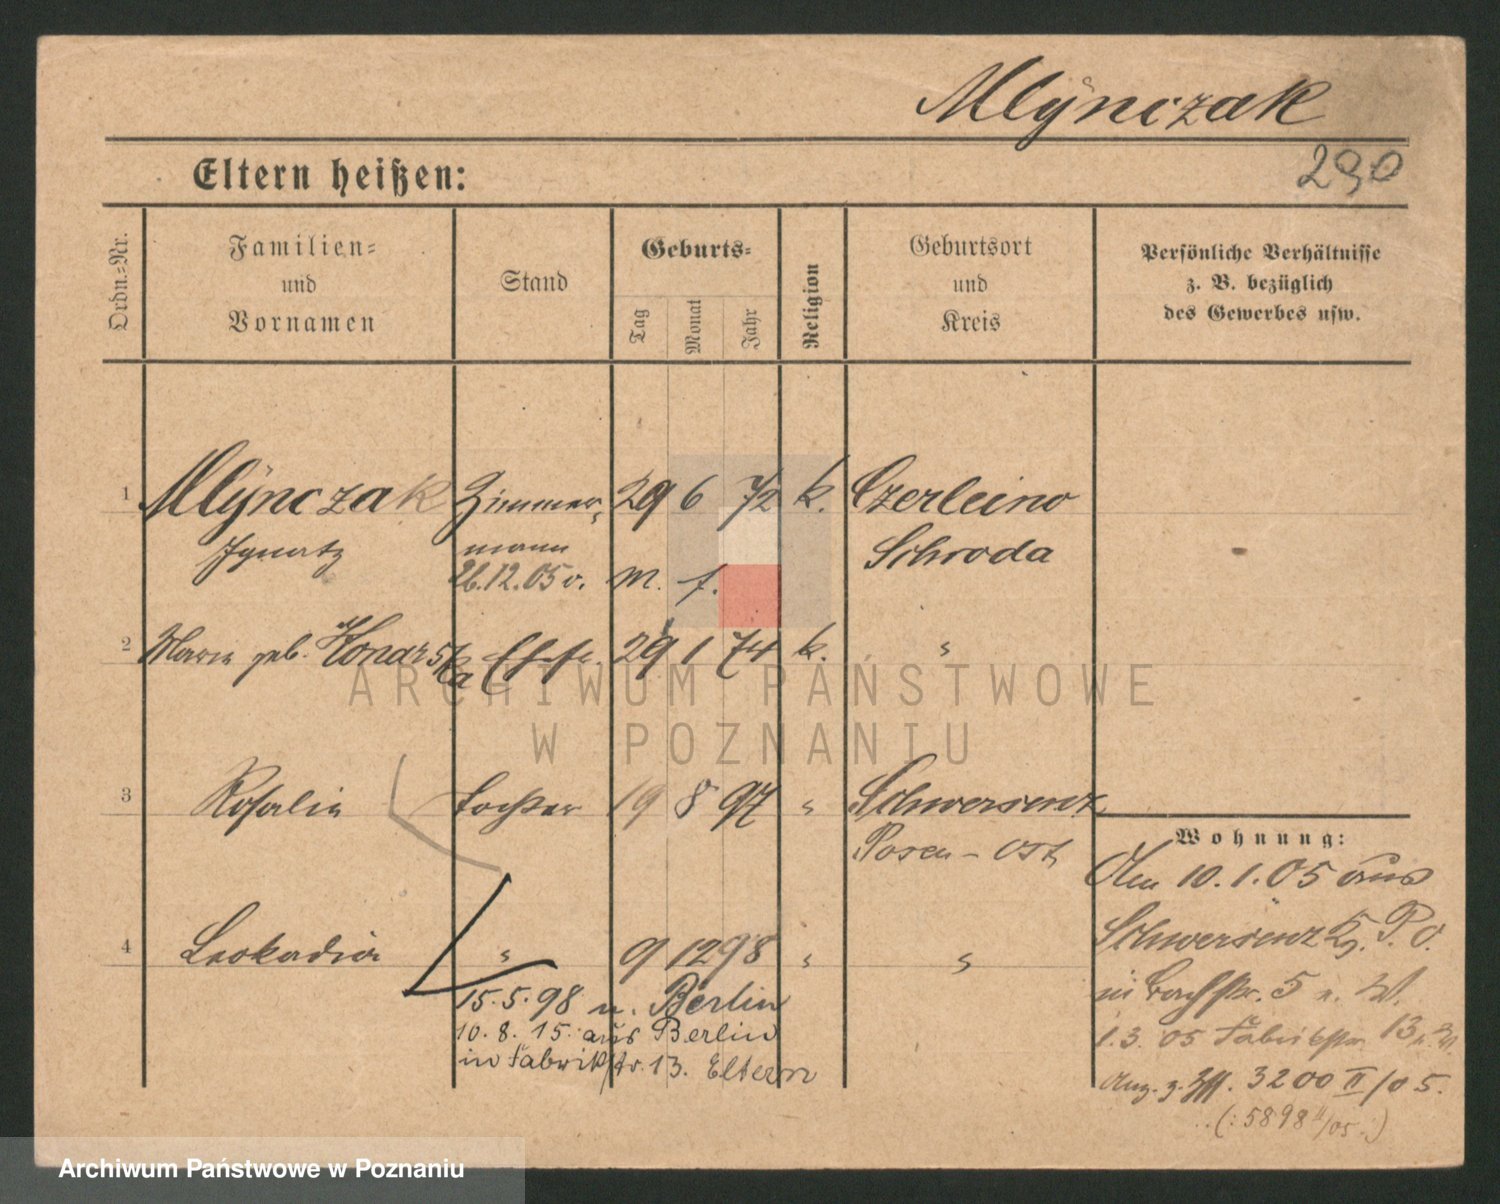 Mlÿnczak
290
Eltern heißen:
Ordn.=Nr.
Familien=
und
Vornamen
Stand
Geburts=
Tag
Monat
Jahr
Religion
Geburtsort
und
Kreis
Persönliche Verhältnisse
z. B. bezüglich
des Gewerbes usw.
1 Mlÿnczak Zimmer- 29 6 72 k. Czerleino
Ignatz mann Schroda
26.12.05 v. M. f.
2 Marie geb. Konarska Ehefr. 29 1 74 k. "
3 Rosalie Tochter 19 8 97 " Schwersenz
Posen - Ost
4 Leokadia " 9 12 98 " "
15.5.98 n. Berlin
10.8.15. aus Berlin
in Fabrikstr. 13. Eltern
Wohnung:
Am 10.1.05 aus
Schwersenz Kr. P. O.
in Bachstr. 5
1.3.05 Fabrikstr. 13
3200 II/05.
(: 5898 II/05 :)
ARCHIWUM PAŃSTWOWE
W POZNANIU
Archiwum Państwowe w Poznaniu